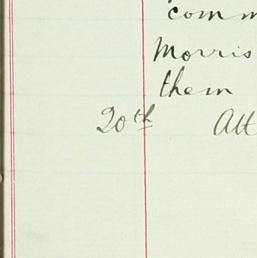 comm
Morris
them
20th Att